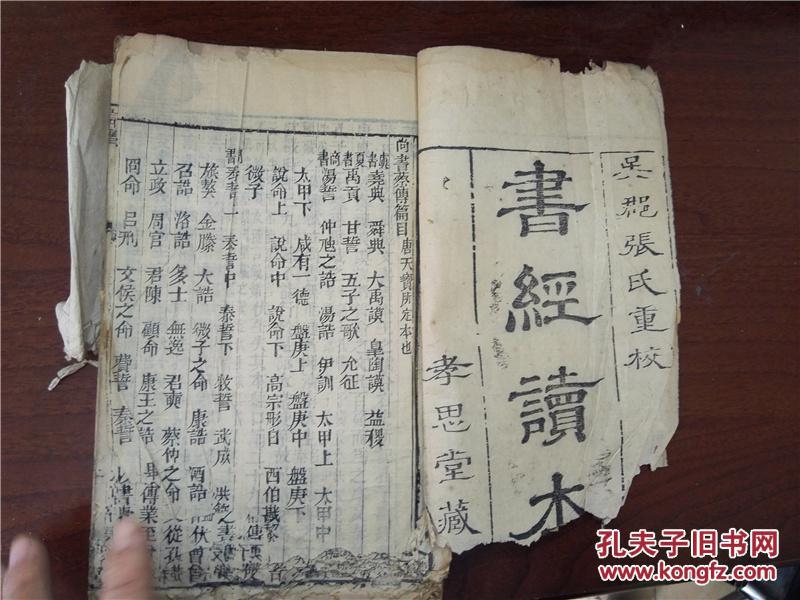 吳郡張氏重校
書經讀本
孝思堂藏
尚書蔡傳篇目唐天寶所定本也
虞書堯典 舜典 大禹謨 皐陶謨 益稷
夏書禹貢 甘誓 五子之歌 允征
商書湯誓 仲虺之誥 湯誥 伊訓 太甲上 太甲中
太甲下 咸有一德 盤庚上 盤庚中 盤庚下
說命上 說命中 說命下 高宗肜日 西伯戡黎
微子
周書泰誓一 泰誓中 泰誓下 牧誓 武成 洪範
旅獒 金縢 大誥 微子之命 康誥 酒誥
召誥 洛誥 多士 無逸 君奭 蔡仲之命
立政 周官 君陳 顧命 康王之誥
冏命 呂刑 文侯之命 費誓 秦誓
孔夫子旧书网
www.kongfz.com